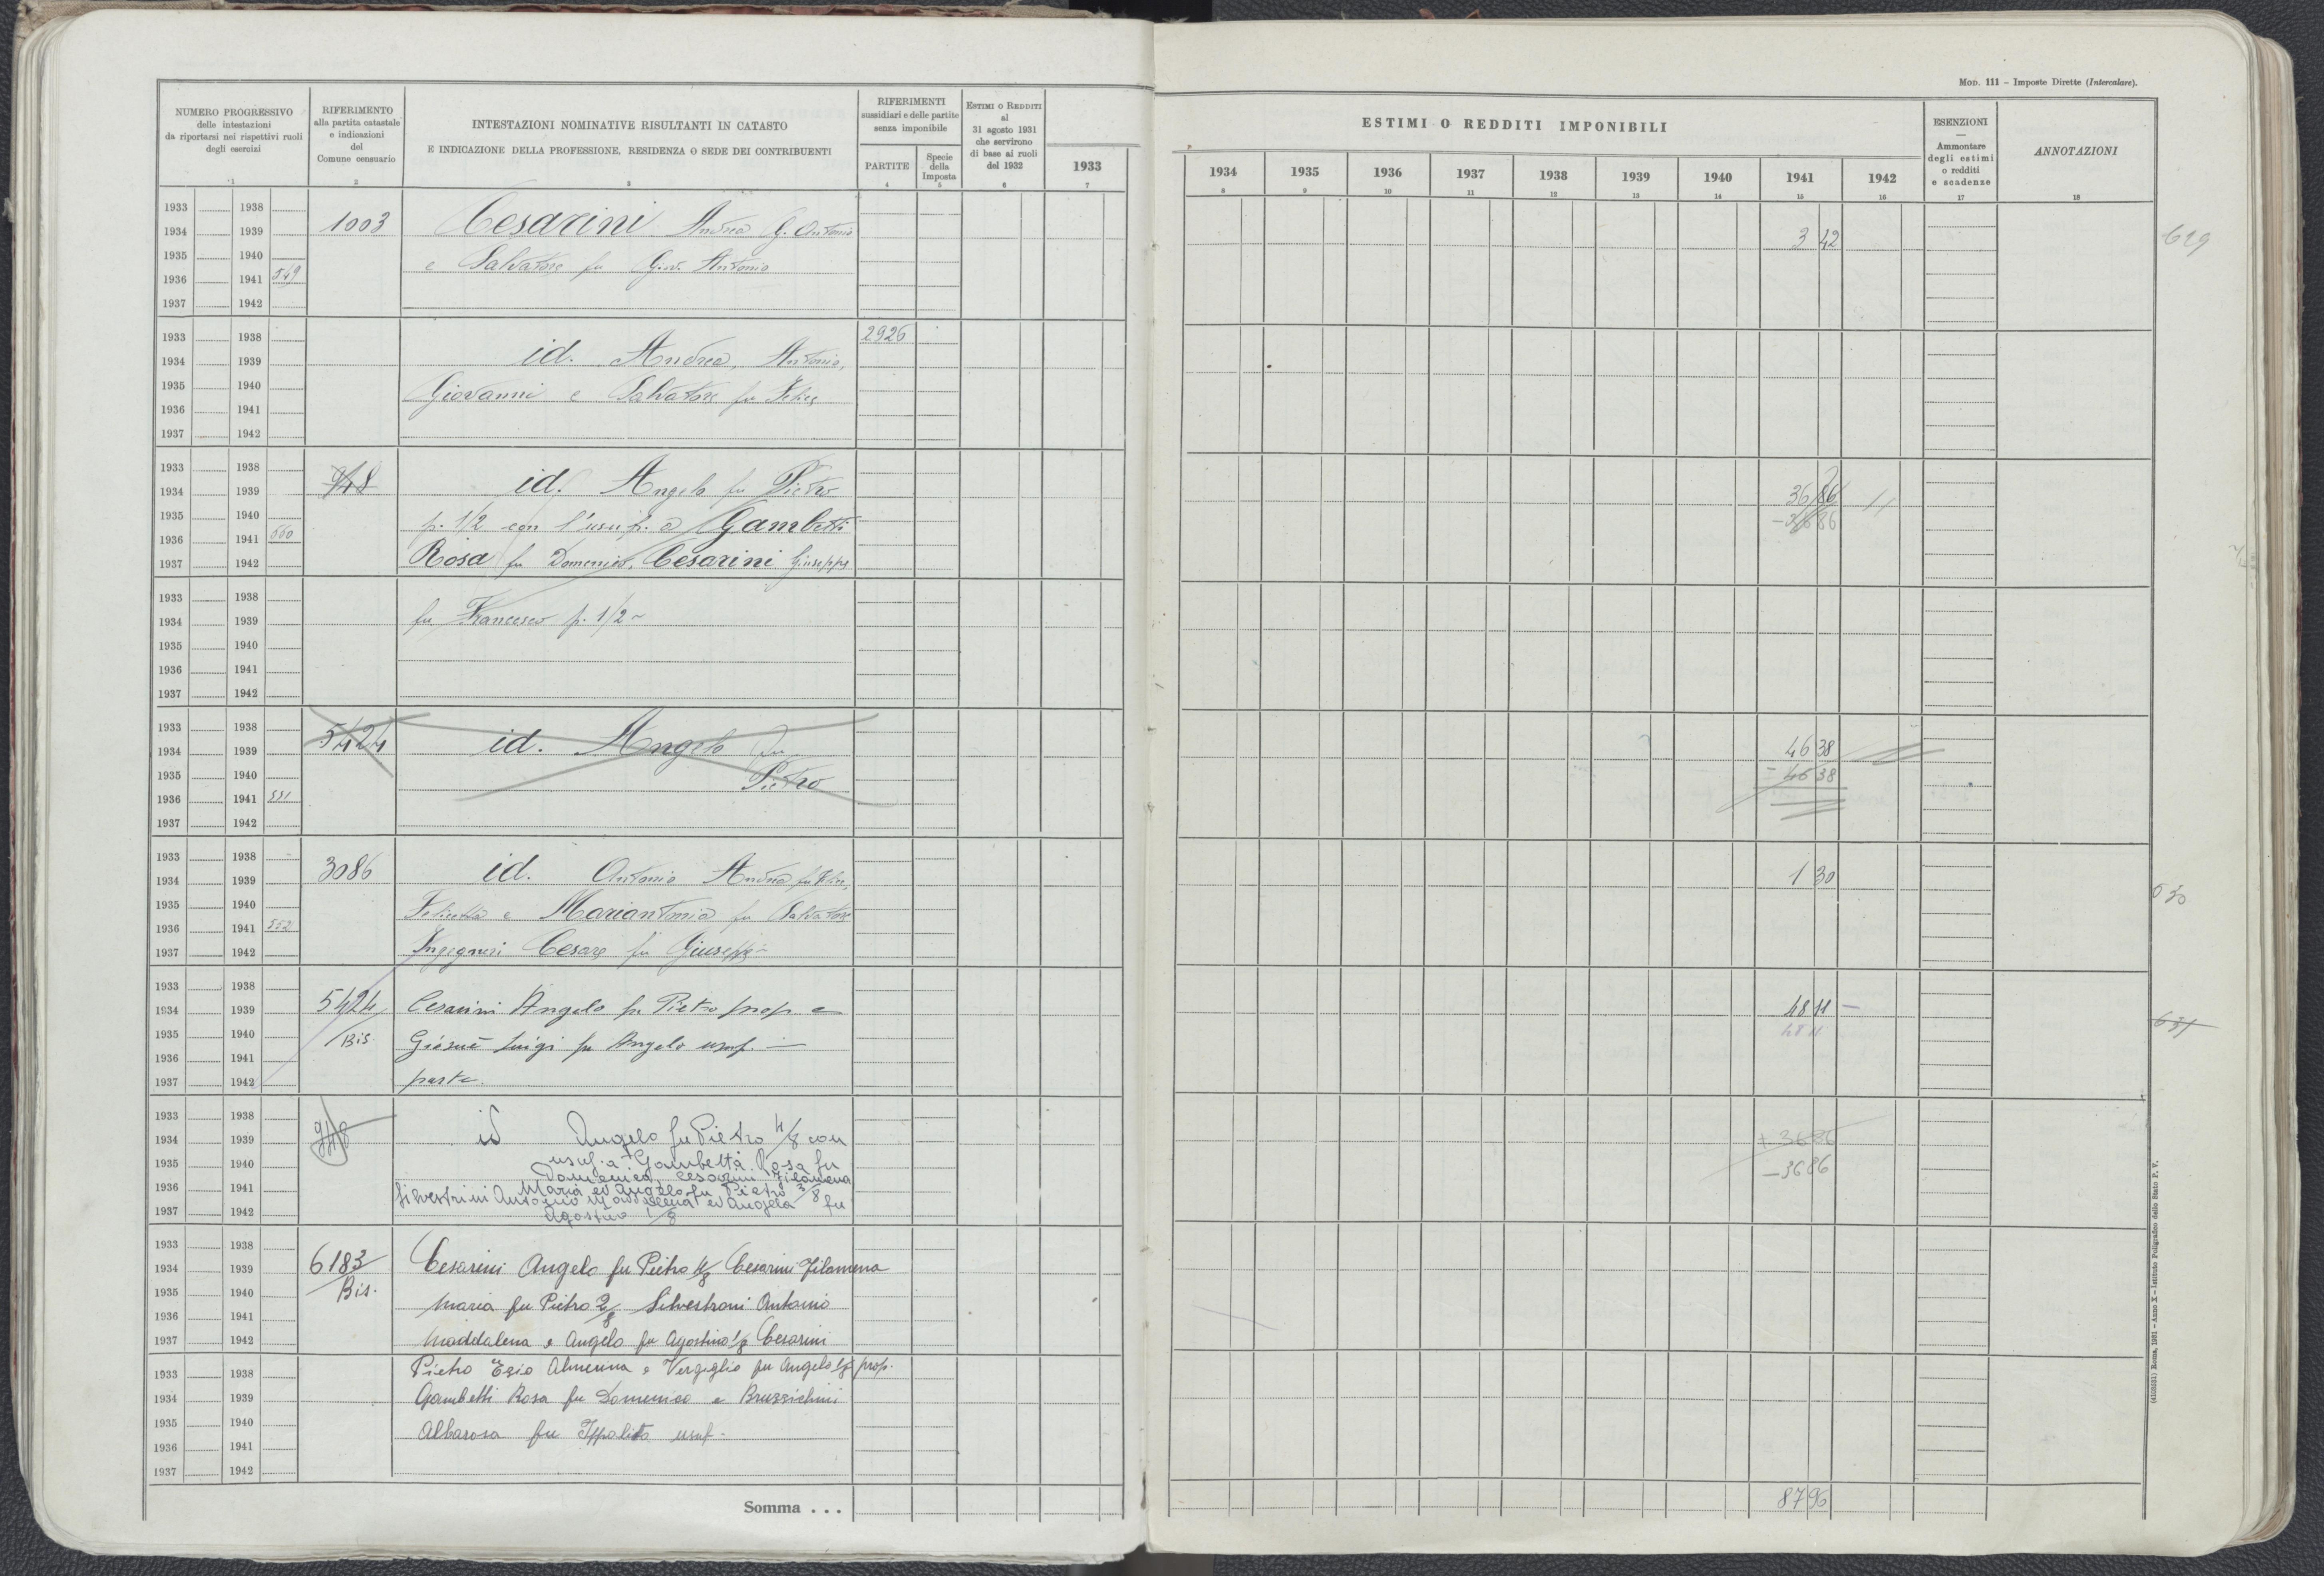 MOD. 111 – Imposte Dirette (Intercalare).
NUMERO PROGRESSIVO
delle intestazioni
da riportarsi nei rispettivi ruoli
degli esercizi
1
RIFERIMENTO
alla partita catastale
e indicazioni
del
Comune censuario
2
INTESTAZIONI NOMINATIVE RISULTANTI IN CATASTO
E INDICAZIONE DELLA PROFESSIONE, RESIDENZA O SEDE DEI CONTRIBUENTI
3
RIFERIMENTI
sussidiari e delle partite
senza imponibile
PARTITE
4
Specie
della
Imposta
5
ESTIMI O REDDITI
al
31 agosto 1931
che servirono
di base ai ruoli
del 1932
6
1933
7
ESTIMI O REDDITI IMPONIBILI
1934 1935 1936 1937 1938 1939 1940 1941 1942
8 9 10 11 12 13 14 15 16
ESENZIONI
—
Ammontare
degli estimi
o redditi
e scadenze
17
ANNOTAZIONI
18
1933 1938
1934 1939 1003 Cesarini Andrea G. Antonio 3 42 629
1935 1940 e Salvatore fu Giov. Antonio
1936 1941 549
1937 1942
1933 1938 2926
1934 1939 id. Andrea, Antonio,
1935 1940 Giovanni e Salvatore fu Felice
1936 1941
1937 1942
1933 1938
1934 1939 948 id. Angelo fu Pietro 36 86
1935 1940 p. 1/2 con l'usuf. a Gambetti - 36 86
1936 1941 550 Rosa fu Domenico, Cesarini Giuseppe
1937 1942
1933 1938
1934 1939 fu Francesco p. 1/2
1935 1940
1936 1941
1937 1942
1933 1938
1934 1939 5424 id. Angelo fu 46 38
1935 1940 Pietro - 46 38
1936 1941 551
1937 1942
1933 1938
1934 1939 3086 id. Antonio Andrea fu Felice, 1 30 630
1935 1940 Felicetta e Mariantonia fu Salvatore
1936 1941 552 Ingegneri Cesare fu Giuseppe
1937 1942
1933 1938
1934 1939 5424 Cesarini Angelo fu Pietro prop. e 48 11 – 631
1935 1940 Bis. Giosuè Luigi fu Angelo usuf. — 48 11
1936 1941 parte.
1937 1942
1933 1938
1934 1939 948 id Angelo fu Pietro 4/8 con + 3686
1935 1940 usuf. a Gambetta Rosa fu - 3686
Domenico, Cesarini Filomena
1936 1941 Maria ed Angelo fu Pietro 3/8
Silvestrini Antonio Maddalena ed Angela fu
1937 1942 Agostino 1/8
1933 1938
1934 1939 6183 Cesarini Angelo fu Pietro 4/8 Cesarini Filomena
1935 1940 Bis. Maria fu Pietro 2/8 Silvestroni Antonio
1936 1941 Maddalena e Angelo fu Agostino 1/8 Cesarini
1937 1942
1933 1938 Pietro Ezio Almerina e Vergiglio fu Angelo 1/8 prop.
1934 1939 Gambetti Rosa fu Domenico e Bruzzichini
1935 1940 Albarosa fu Ippolito usuf.
1936 1941
1937 1942
Somma . . . 87 96
(4103531) Roma, 1931 – Anno X – Istituto Poligrafico dello Stato P. V.